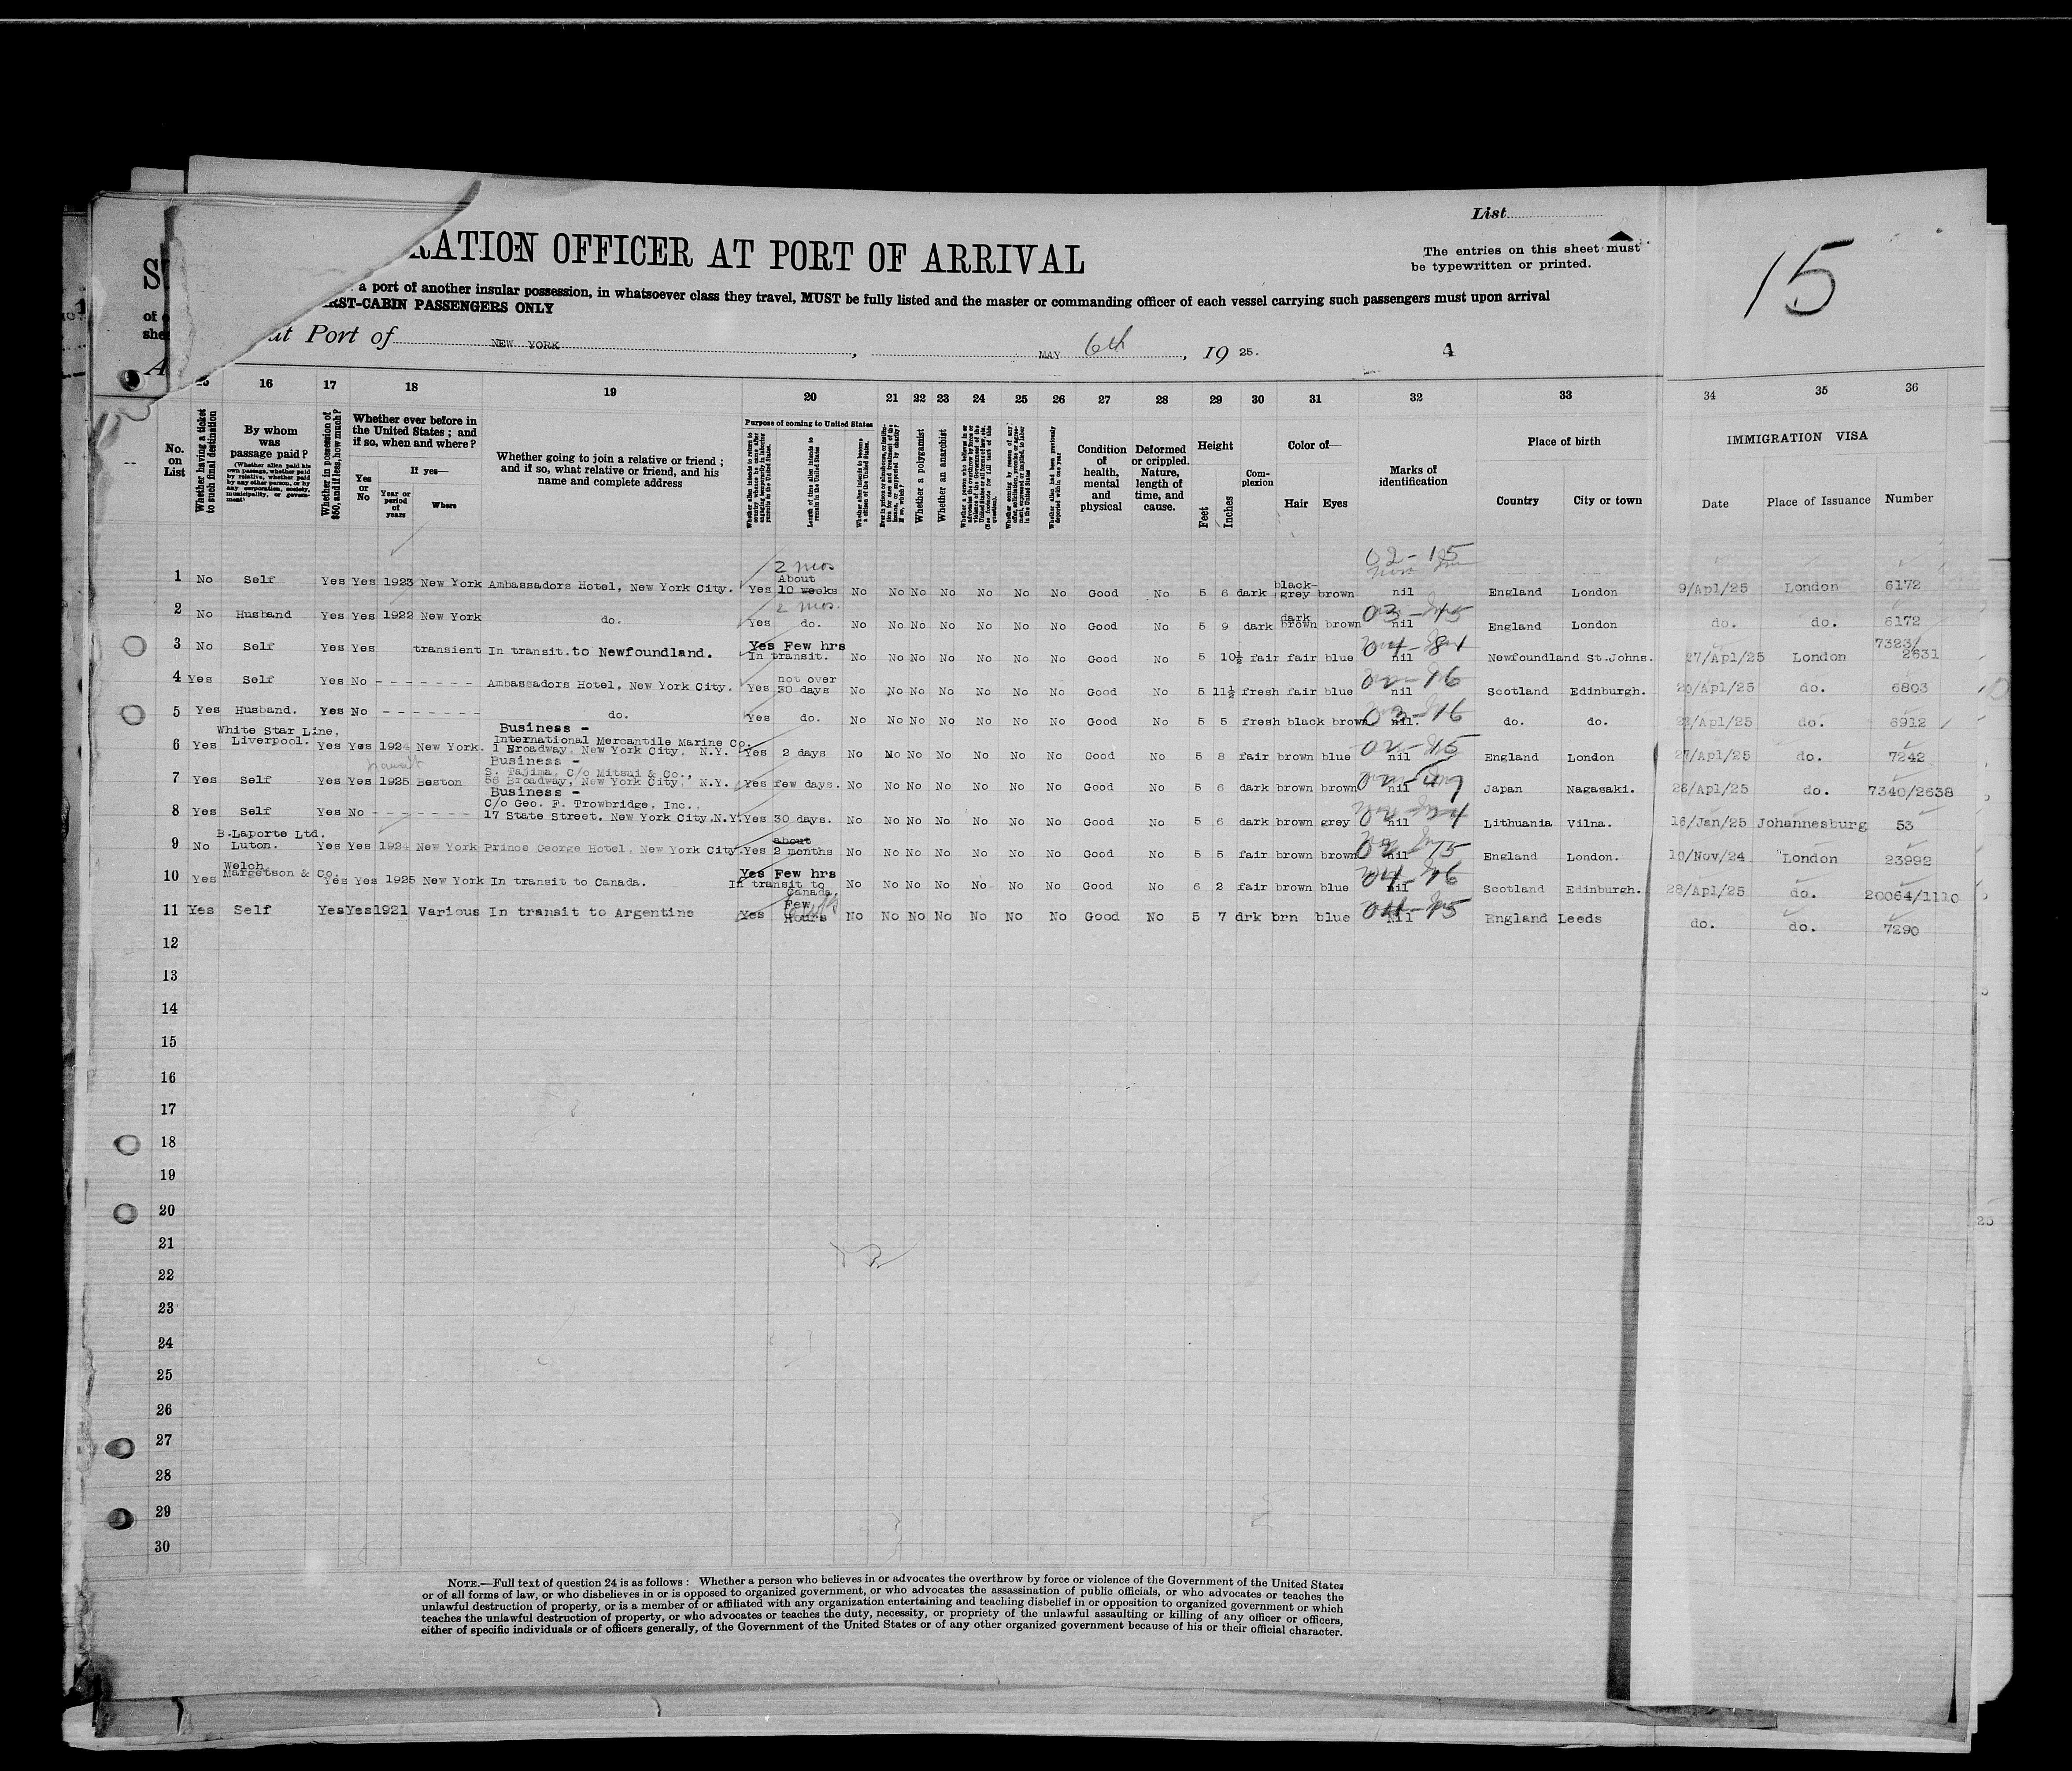 List
RATION OFFICER AT PORT OF ARRIVAL
The entries on this sheet must
be typewritten or printed.
15
a port of another insular possession, in whatsoever class they travel, MUST be fully listed and the master or commanding officer of each vessel carrying such passengers must upon arrival
RST-CABIN PASSENGERS ONLY
at Port of NEW YORK, MAY 6th, 1925. 4
16 17 18 19 20 21 22 23 24 25 26 27 28 29 30 31 32 33 34 35 36
No. on List
Whether having a ticket to such final destination
By whom was passage paid?
(Whether alien paid his own passage, whether paid by relative, whether paid by any other person, or by any corporation, society, municipality, or government)
Whether in possession of $50, and if less, how much?
Whether ever before in the United States; and if so, when and where?
Yes or No
If yes—
Year or period of years
Where
Whether going to join a relative or friend; and if so, what relative or friend, and his name and complete address
Purpose of coming to United States
Length of time alien intends to remain in the United States
Whether a polygamist
Whether an anarchist
Condition of health, mental and physical
Deformed or crippled. Nature, length of time, and cause.
Height
Feet
Inches
Complexion
Color of—
Hair
Eyes
Marks of identification
Place of birth
Country
City or town
IMMIGRATION VISA
Date
Place of Issuance
Number
1 No Self Yes Yes 1923 New York Ambassadors Hotel, New York City. Yes 2 mos About 10 weeks No No No No No No No Good No 5 6 dark black-grey brown 02-15 nil England London 9/Apl/25 London 6172
2 No Husband Yes Yes 1922 New York do. Yes 2 mos. do. No No No No No No No Good No 5 9 dark dark brown brown nil England London do. do. 6172
3 No Self Yes Yes transient In transit to Newfoundland. Yes Few hrs In transit. No No No No No No No Good No 5 10½ fair fair blue nil Newfoundland St.Johns. 27/Apl/25 London 7323/2631
4 Yes Self Yes No - - - - - - - Ambassadors Hotel, New York City. Yes not over 30 days No No No No No No No Good No 5 11½ fresh fair blue nil Scotland Edinburgh. do. 6803
5 Yes Husband. Yes No - - - - - - - do. Yes do. No No No No No No No Good No 5 5 fresh black brown nil. do. do. do. 6912
6 Yes White Star Line, Liverpool. Yes Yes 1924 New York. Business - International Mercantile Marine Co. 1 Broadway, New York City, N.Y. Yes 2 days No No No No No No No Good No 5 8 fair brown blue nil England London 27/Apl/25 do. 7242
7 Yes Self Yes Yes 1925 Boston Business - S. Tajima, C/o Mitsui & Co., Broadway, New York City, N.Y. Yes few days. No No No No No No No Good No 5 6 dark brown brown nil Japan Nagasaki. 28/Apl/25 do. 7340/2638
8 Yes Self Yes No - - - - - - - Business - C/o Geo. F. Trowbridge, Inc., 17 State Street, New York City,N.Y. Yes 30 days. No No No No No No No Good No 5 6 dark brown grey nil Lithuania Vilna. 16/Jan/25 Johannesburg 53
9 No B.Laporte Ltd. Luton. Yes Yes 1924 New York Prince George Hotel, New York City. Yes about 2 months No No No No No No No Good No 5 5 fair brown brown nil England London. 10/Nov/24 London 23992
10 Yes Welch, Margetson & Co. Yes Yes 1925 New York In transit to Canada. Yes Few hrs In transit to Canada. No No No No No No No Good No 6 2 fair brown blue nil Scotland Edinburgh. 28/Apl/25 do. 20064/1110
11 Yes Self Yes Yes 1921 Various In transit to Argentine Yes Few Hours No No No No No No No Good No 5 7 drk brn blue Nil England Leeds do. do. 7290
12
13
14
15
16
17
18
19
20
21
22
23
24
25
26
27
28
29
30
NOTE.—Full text of question 24 is as follows: Whether a person who believes in or advocates the overthrow by force or violence of the Government of the United States
or of all forms of law, or who disbelieves in or is opposed to organized government, or who advocates the assassination of public officials, or who advocates or teaches the
unlawful destruction of property, or is a member of or affiliated with any organization entertaining and teaching disbelief in or opposition to organized government or which
teaches the unlawful destruction of property, or who advocates or teaches the duty, necessity, or propriety of the unlawful assaulting or killing of any officer or officers,
either of specific individuals or of officers generally, of the Government of the United States or of any other organized government because of his or their official character.